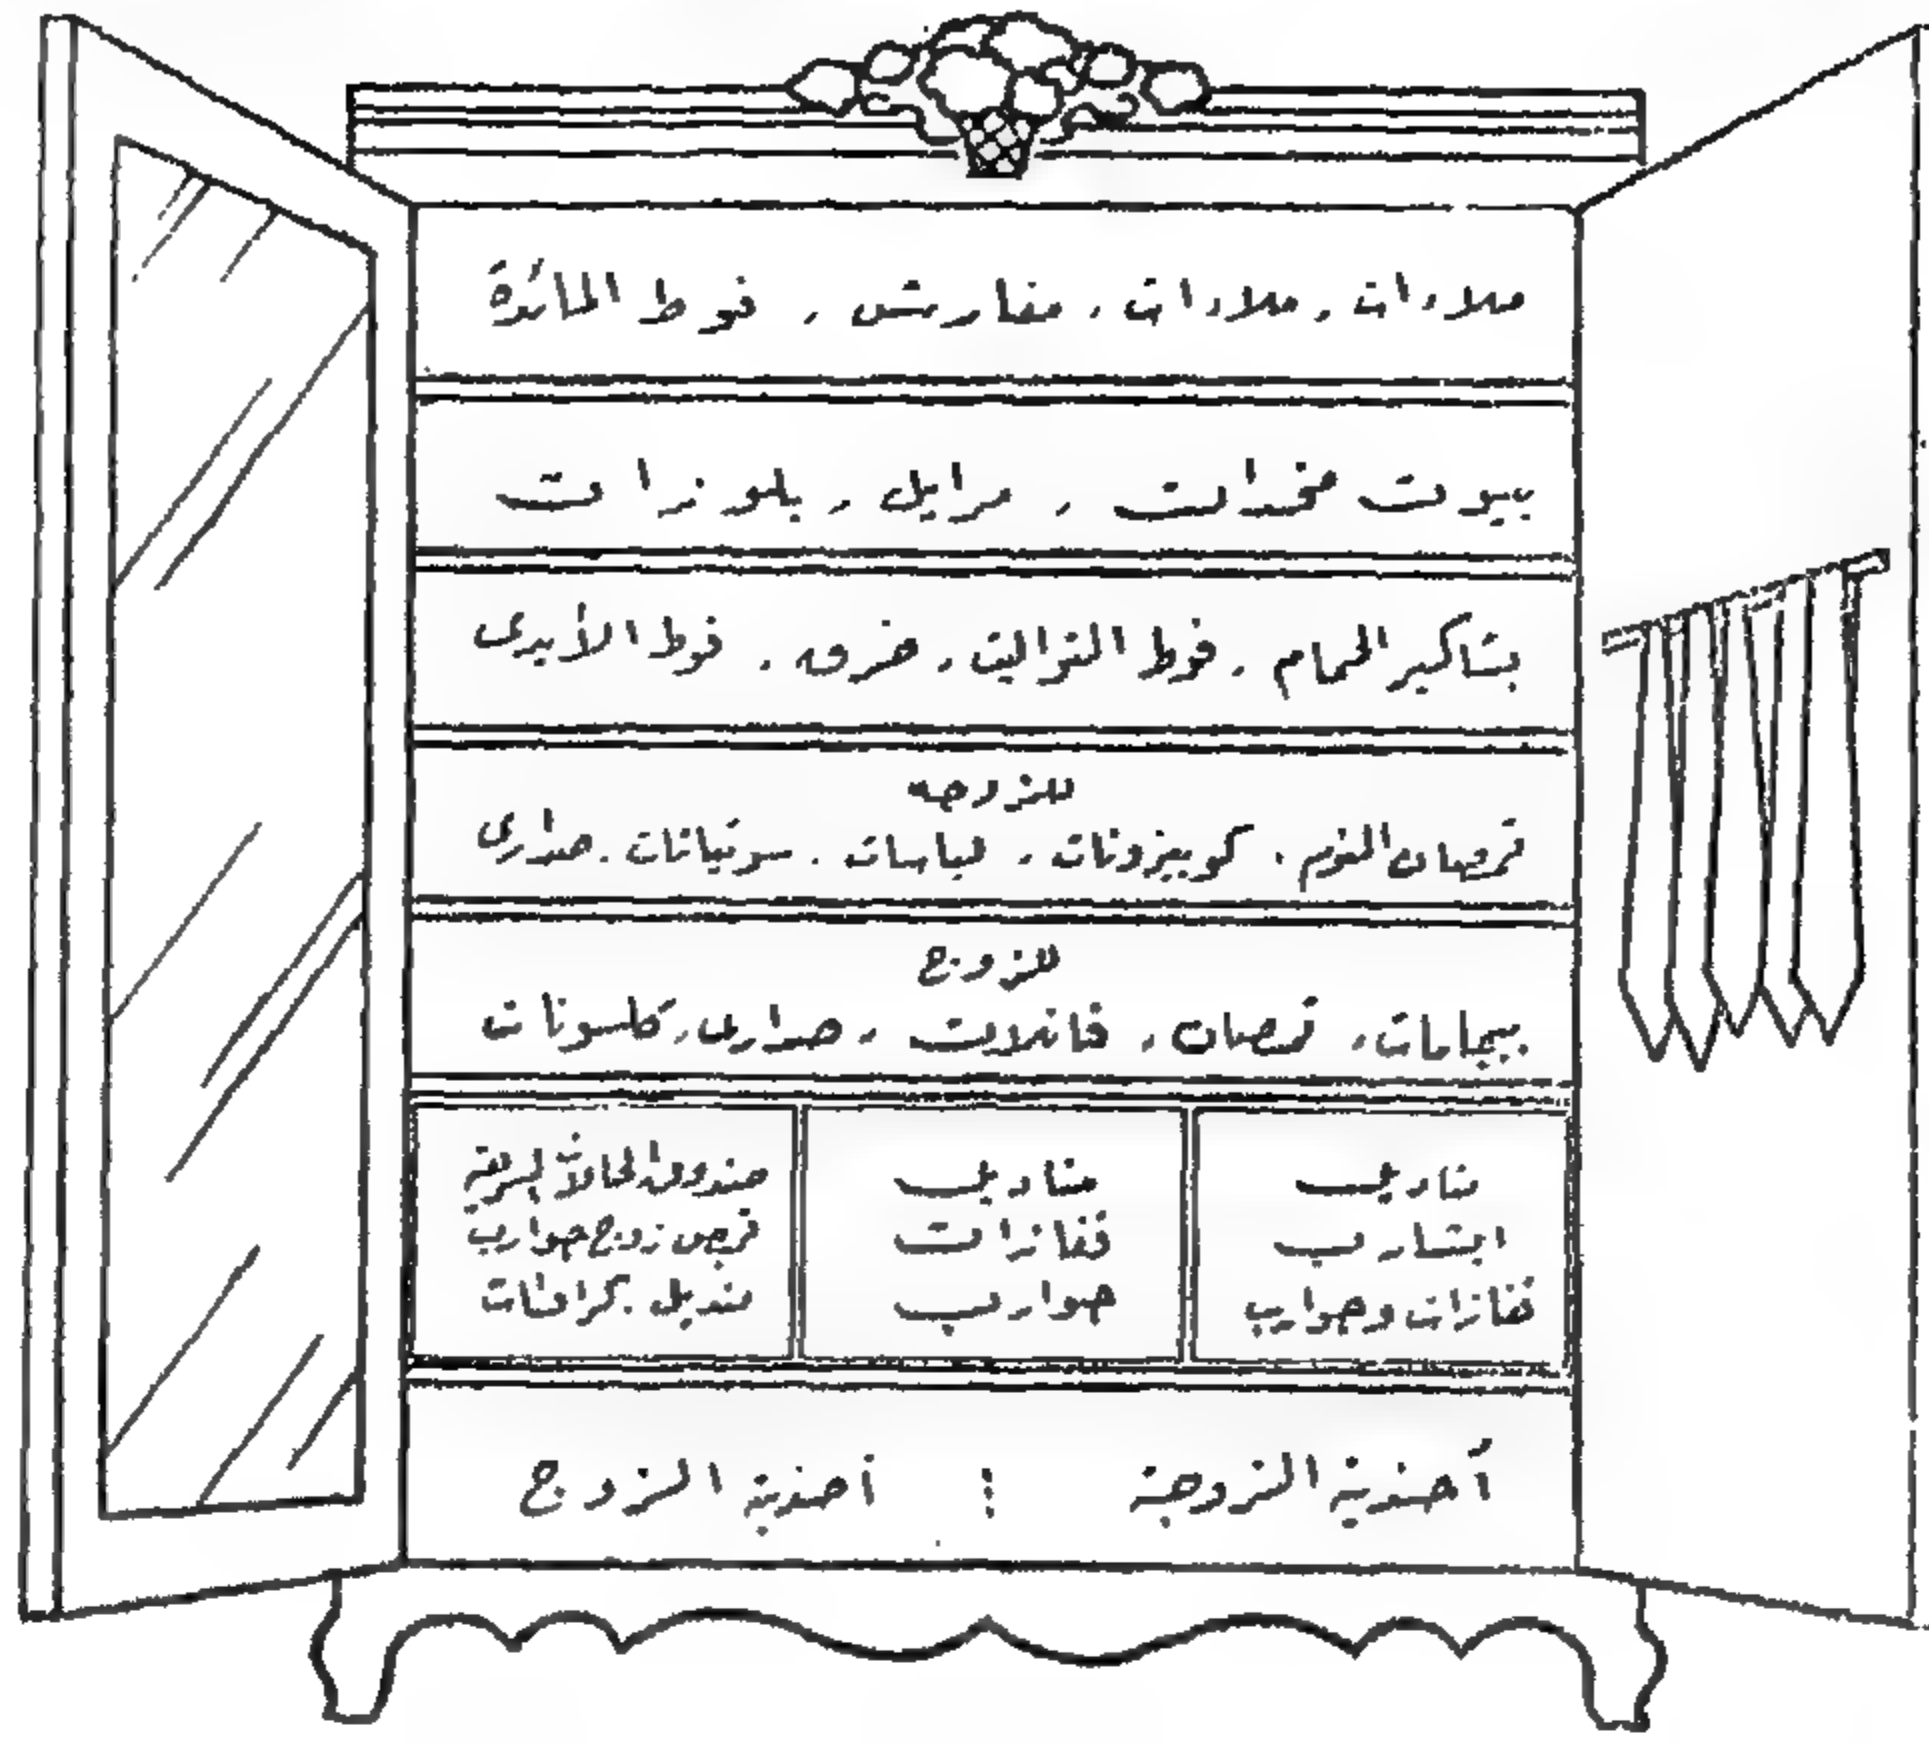 ملاءات ، ملاءات ، مفارش ، فوط المائدة
بيوت مخدات ، مرايل ، بلوزات
بشاكير الحمام ، فوط التواليت ، خرق ، فوط الأيدى
للزوجه
قمصان النوم ، كومبيزونات ، لباسات ، سوتيانات ، صدارى
للزوج
بيجامات ، قمصان ، فانلات ، صدارى ، كلسونات
مناديل
ايشارب
قفازات وجوارب
مناديل
قفازات
جوارب
صندوق الحالات
قميص زوج جوارب
منديل . كرافتات
أحذية الزوجة : أحذية الزوج